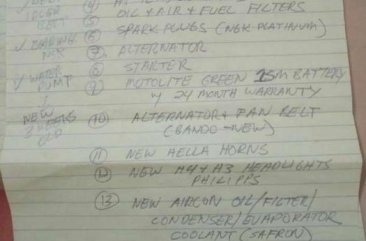 ④
OIL & AIR & FUEL FILTERS
⑤ SPARK PLUGS (NGK PLATINUM)
⑦ ALTERNATOR
⑧ STARTER
⑨ MOTOLITE GREEN BATTERY
w/ 24 MONTH WARRANTY
NEW
⑩ ALTERNATOR & FAN BELT
(BANDO - NEW)
⑪ NEW HELLA HORNS
⑫ NEW H4 & H3 HEADLIGHTS
PHILIPPS
⑬ NEW AIRCON OIL/FILTER/
CONDENSER/EVAPORATOR
COOLANT (SAFRON)